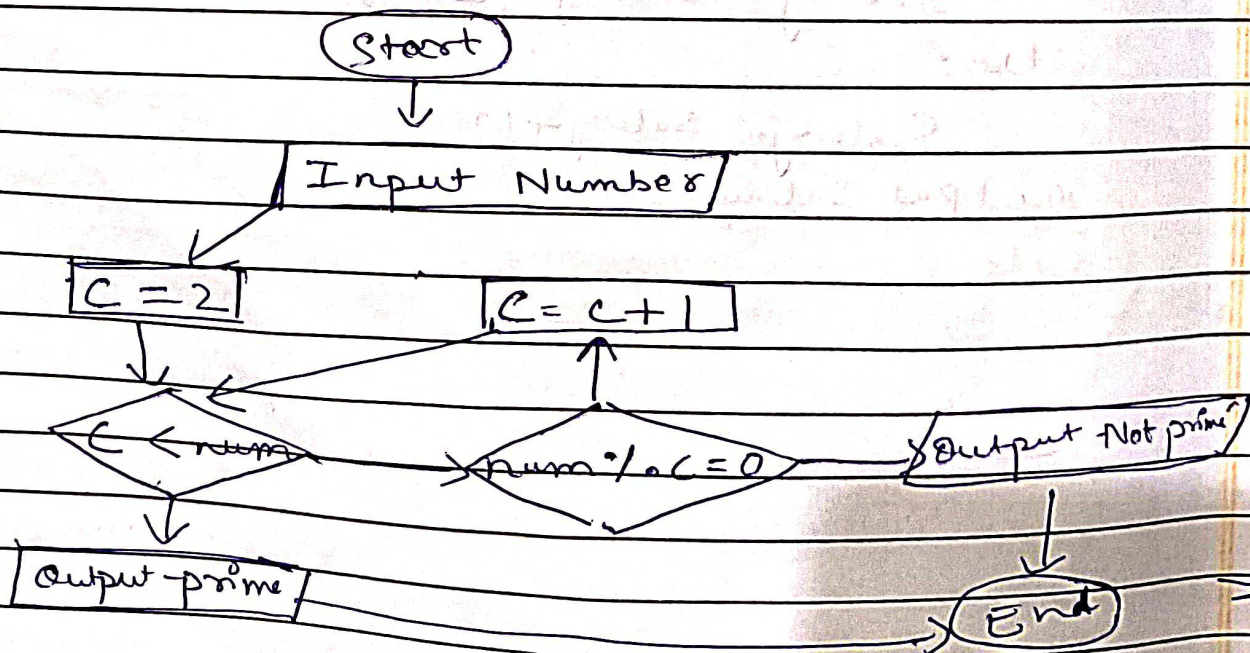 Start
Input Number
C = 2
C = C + 1
C < num
num % C = 0
Output Not prime
Output prime
End